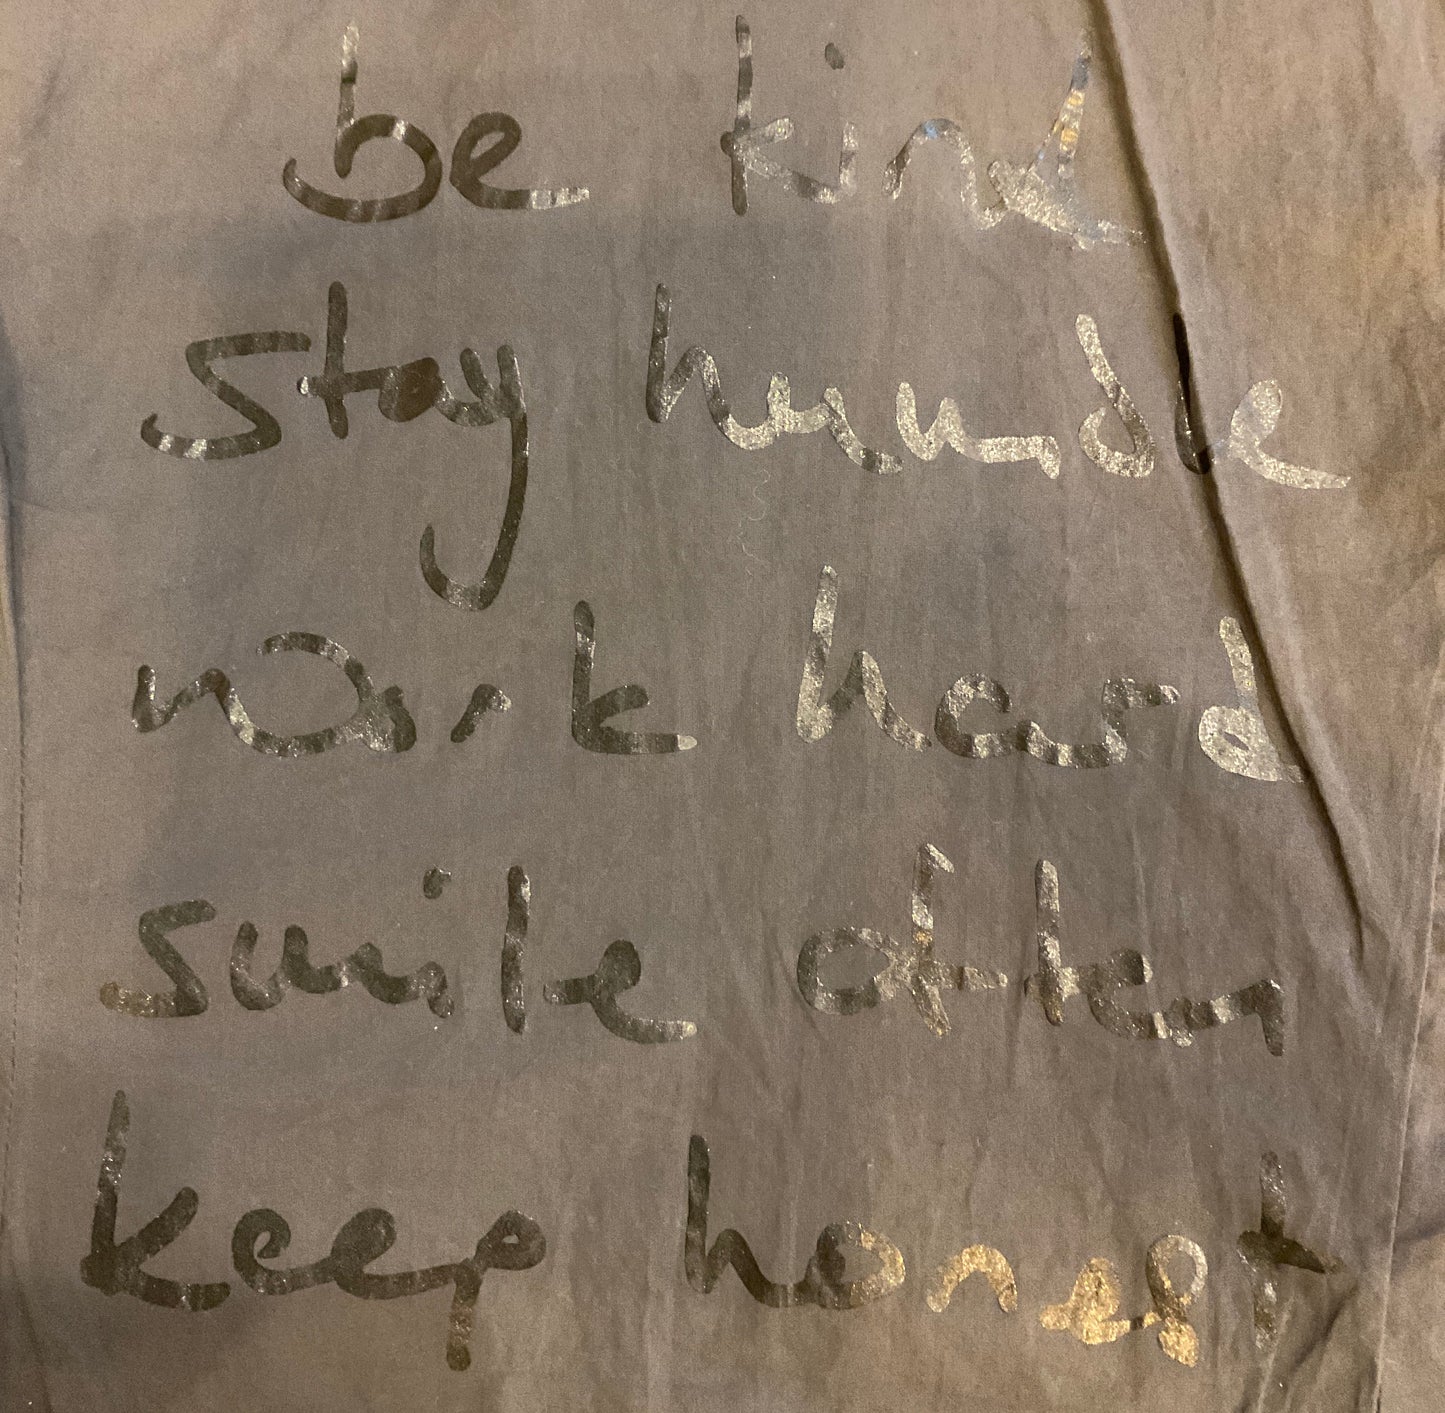 be kind
stay humble
work hard
smile often
keep honest